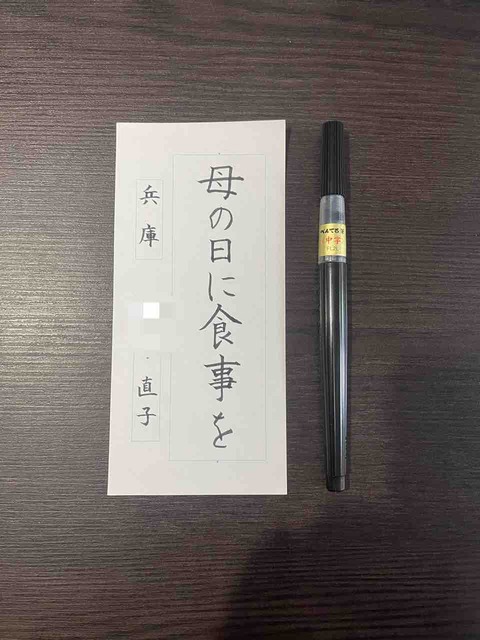 母の日に食事を
兵庫
直子
ぺんてる筆
中字